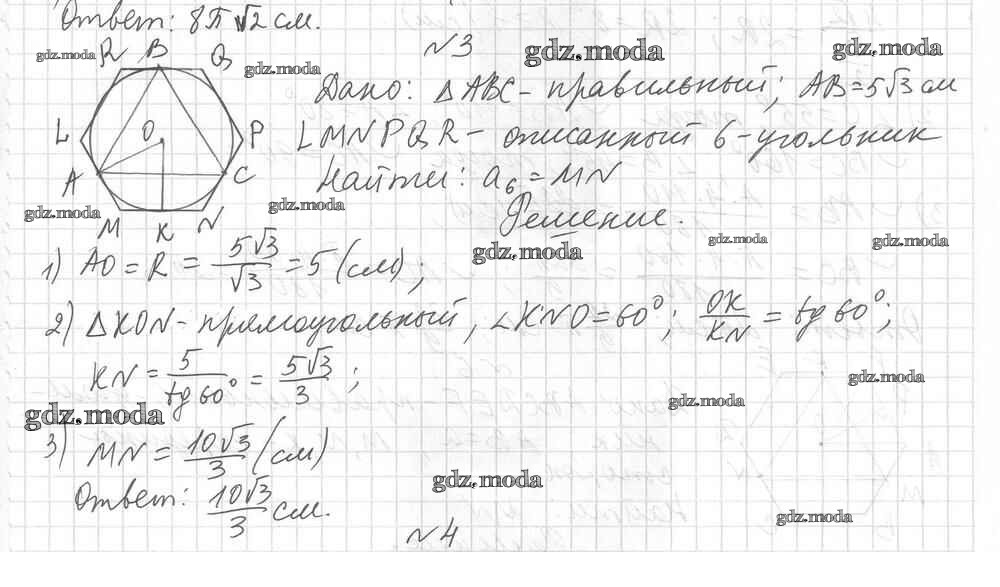 Ответ: 8π√2 см.
№3
gdz.moda
gdz.moda
gdz.moda
gdz.moda
R B Q
L O P
A C
M K N
Дано: △ABC - правильный; AB = 5√3 см
LMNPQR - описанный 6-угольник
Найти: a₆ = MN
gdz.moda
gdz.moda
Решение.
gdz.moda
gdz.moda
gdz.moda
1) AO = R = 5√3/√3 = 5 (см);
2) △KON - прямоугольный, ∠KNO = 60°; OK/KN = tg 60°;
KN = 5/tg 60° = 5√3/3;
gdz.moda
gdz.moda
gdz.moda
3) MN = 10√3/3 (см)
gdz.moda
Ответ: 10√3/3 см.
gdz.moda
№4